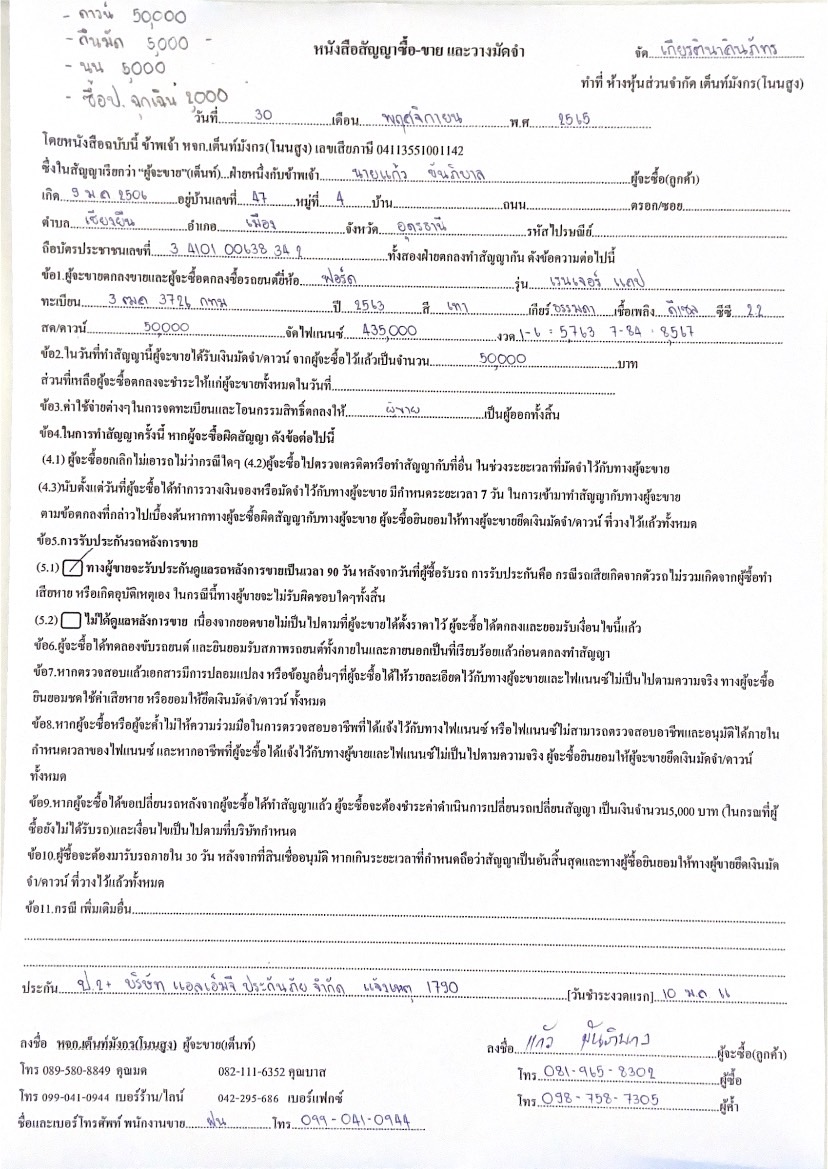 - ดาวน์ 50,000
- คืนมัด 5,000 -
- นน 5,000
- ซื้อป. ฉุกเฉิน 2,000
หนังสือสัญญาซื้อ-ขาย และวางมัดจำ
จัด เกียรตินาคินภัทร
ทำที่ ห้างหุ้นส่วนจำกัด เต็นท์มังกร(โนนสูง)
วันที่ 30 เดือน พฤศจิกายน พ.ศ. 2565
โดยหนังสือฉบับนี้ ข้าพเจ้า หจก.เต็นท์มังกร(โนนสูง) เลขเสียภาษี 04113551001142
ซึ่งในสัญญาเรียกว่า "ผู้จะขาย"(เต็นท์)...ฝ่ายหนึ่งกับข้าพเจ้า นายแก้ว ขันภิบาล ผู้จะซื้อ(ลูกค้า)
เกิด 9 ม.ค 2506 อยู่บ้านเลขที่ 47 หมู่ที่ 4 บ้าน ถนน ตรอก/ซอย
ตำบล เชียงยืน อำเภอ เมือง จังหวัด อุดรธานี รหัสไปรษณีย์
ถือบัตรประชาชนเลขที่ 3 4101 00638 34 2 ทั้งสองฝ่ายตกลงทำสัญญากัน ดังข้อความต่อไปนี้
ข้อ1.ผู้จะขายตกลงขายและผู้จะซื้อตกลงซื้อรถยนต์ยี่ห้อ ฟอร์ด รุ่น เรนเจอร์ แคป
ทะเบียน 3 ฒฒ 3726 กทม ปี 2563 สี เทา เกียร์ ธรรมดา เชื้อเพลิง ดีเซล ซีซี 2.2
สด/ดาวน์ 50,000 จัดไฟแนนซ์ 435,000 งวด 1-6 : 5,763 7-84 : 8,567
ข้อ2.ในวันที่ทำสัญญานี้ผู้จะขายได้รับเงินมัดจำ/ดาวน์ จากผู้จะซื้อไว้แล้วเป็นจำนวน 50,000 บาท
ส่วนที่เหลือผู้จะซื้อตกลงจะชำระให้แก่ผู้จะขายทั้งหมดในวันที่
ข้อ3.ค่าใช้จ่ายต่างๆในการจดทะเบียนและโอนกรรมสิทธิ์ตกลงให้ ผู้ขาย เป็นผู้ออกทั้งสิ้น
ข้อ4.ในการทำสัญญาครั้งนี้ หากผู้จะซื้อผิดสัญญา ดังข้อต่อไปนี้
(4.1) ผู้จะซื้อยกเลิกไม่เอารถไม่ว่ากรณีใดๆ (4.2)ผู้จะซื้อไปตรวจเครดิตหรือทำสัญญากับที่อื่น ในช่วงระยะเวลาที่มัดจำไว้กับทางผู้จะขาย
(4.3)นับตั้งแต่วันที่ผู้จะซื้อได้ทำการวางเงินจองหรือมัดจำไว้กับทางผู้จะขาย มีกำหนดระยะเวลา 7 วัน ในการเข้ามาทำสัญญากับทางผู้จะขาย
ตามข้อตกลงที่กล่าวไปเบื้องต้นหากทางผู้จะซื้อผิดสัญญากับทางผู้จะขาย ผู้จะซื้อยินยอมให้ทางผู้จะขายยึดเงินมัดจำ/ดาวน์ ที่วางไว้แล้วทั้งหมด
ข้อ5.การรับประกันรถหลังการขาย
(5.1) ทางผู้ขายจะรับประกันดูแลรถหลังการขายเป็นเวลา 90 วัน หลังจากวันที่ผู้ซื้อรับรถ การรับประกันคือ กรณีรถเสียเกิดจากตัวรถไม่รวมเกิดจากผู้ซื้อทำ
เสียหาย หรือเกิดอุบัติเหตุเอง ในกรณีนี้ทางผู้ขายจะไม่รับผิดชอบใดๆทั้งสิ้น
(5.2) ไม่ได้ดูแลหลังการขาย เนื่องจากยอดขายไม่เป็นไปตามที่ผู้จะขายได้ตั้งราคาไว้ ผู้จะซื้อได้ตกลงและยอมรับเงื่อนไขนี้แล้ว
ข้อ6.ผู้จะซื้อได้ทดลองขับรถยนต์ และยินยอมรับสภาพรถยนต์ทั้งภายในและภายนอกเป็นที่เรียบร้อยแล้วก่อนตกลงทำสัญญา
ข้อ7.หากตรวจสอบแล้วเอกสารมีการปลอมแปลง หรือข้อมูลอื่นๆที่ผู้จะซื้อได้ให้รายละเอียดไว้กับทางผู้จะขายและไฟแนนซ์ไม่เป็นไปตามความจริง ทางผู้จะซื้อ
ยินยอมชดใช้ค่าเสียหาย หรือยอมให้ยึดเงินมัดจำ/ดาวน์ ทั้งหมด
ข้อ8.หากผู้จะซื้อหรือผู้จะค้ำไม่ให้ความร่วมมือในการตรวจสอบอาชีพที่ได้แจ้งไว้กับทางไฟแนนซ์ หรือไฟแนนซ์ไม่สามารถตรวจสอบอาชีพและอนุมัติได้ภายใน
กำหนดเวลาของไฟแนนซ์ และหากอาชีพที่ผู้จะซื้อได้แจ้งไว้กับทางผู้ขายและไฟแนนซ์ไม่เป็นไปตามความจริง ผู้จะซื้อยินยอมให้ผู้จะขายยึดเงินมัดจำ/ดาวน์
ทั้งหมด
ข้อ9.หากผู้จะซื้อได้ขอเปลี่ยนรถหลังจากผู้จะซื้อได้ทำสัญญาแล้ว ผู้จะซื้อจะต้องชำระค่าดำเนินการเปลี่ยนรถเปลี่ยนสัญญา เป็นเงินจำนวน5,000 บาท (ในกรณที่ผู้
ซื้อยังไม่ได้รับรถ)และเงื่อนไขเป็นไปตามที่บริษัทกำหนด
ข้อ10.ผู้ซื้อจะต้องมารับรถภายใน 30 วัน หลังจากที่สินเชื่ออนุมัติ หากเกินระยะเวลาที่กำหนดถือว่าสัญญาเป็นอันสิ้นสุดและทางผู้ซื้อยินยอมให้ทางผู้ขายยึดเงินมัด
จำ/ดาวน์ ที่วางไว้แล้วทั้งหมด
ข้อ11.กรณี เพิ่มเติมอื่น
ประกัน ป.2+ บริษัท แอลเอ็มจี ประกันภัย จำกัด แจ้งเหตุ 1790 [วันชำระงวดแรก] 10 ม.ค 66
ลงชื่อ หจก.เต็นท์มังกร(โนนสูง) ผู้จะขาย(เต็นท์)
ลงชื่อ แก้ว ผู้จะซื้อ(ลูกค้า)
โทร 089-580-8849 คุณมด 082-111-6352 คุณบาส
โทร 081-965-8302 ผู้ซื้อ
โทร 099-041-0944 เบอร์ร้าน/ไลน์ 042-295-686 เบอร์แฟกซ์
โทร 098-758-7305 ผู้ค้ำ
ชื่อและเบอร์โทรศัพท์ พนักงานขาย ฝน โทร 099-041-0944